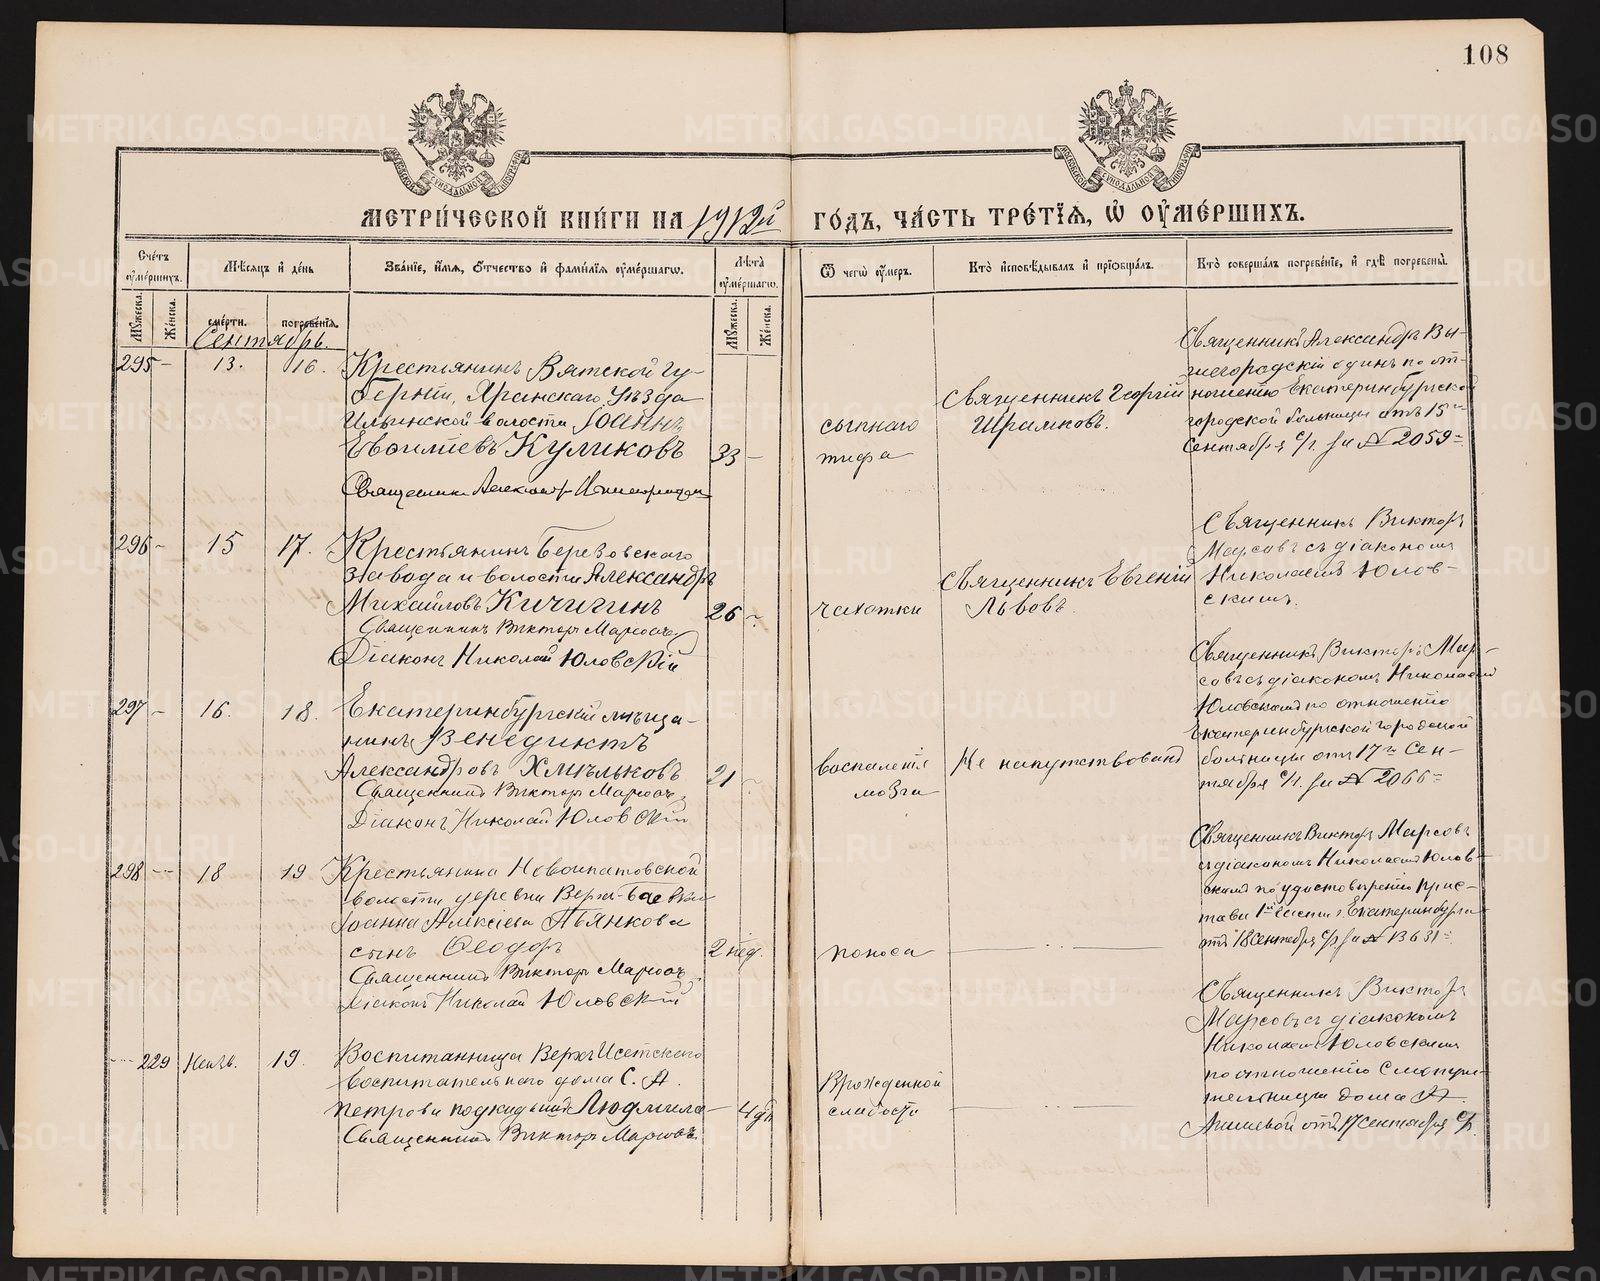 108
МЕТРИЧЕСКОЙ КНИГИ НА 1912й ГОДЪ, ЧАСТЬ ТРЕТІЯ, Ѿ ОУМЕРШИХЪ.
Счетъ оумершихъ.
Мѣсяцъ и день
Званіе, имя, отчество и фамилія оумершагѡ.
Лѣта оумершагѡ.
Ѿ чегѡ оумеръ.
Кто исповѣдывалъ и пріобщалъ.
Кто совершалъ погребеніе, и гдѣ погребены.
Мужеска.
Женска.
смерти.
погребенія.
Мужеска.
Женска.
Сентябрь.
295 - 13. 16.
Крестьянинъ Вятской гу-
берніи, Яранскаго Уѣзда
Ильинской волости Іоаннъ
Куликовъ 33 -
Священникъ Александръ
сыпнаго
тифа
Священникъ Георгій
Священникъ Александръ Вы-
одинъ по от-
ношенію Екатеринбургской
городской больницы отъ 15го
Сентября с/г. за № 2059=
296 - 15 17.
Крестьянинъ Березовскаго
завода и волости Александръ
Михайловъ Кичигинъ 26 -
Священникъ Викторъ Марсовъ
Діаконъ Николай Юловскій
чахотки
Священникъ Евгеній
Львовъ.
Священникъ Викторъ
Марсовъ съ діакономъ
Николаемъ Юлов-
скимъ.
297 - 16. 18.
Екатеринбургскій мѣща-
нинъ Венедиктъ
Александровъ Хмѣльковъ 21 -
Священникъ Викторъ Марсовъ
Діаконъ Николай Юловскій
воспаленія
мозга
Не напутствованъ
Священникъ Викторъ Мар-
совъ съ діакономъ Николаемъ
Юловскимъ по отношенію
Екатеринбургской городской
больницы отъ 17го Сен-
тября с/г. за № 2066=
298 - 18 19
Крестьянина Новоипатовской
волости деревни
Іоанна Алексіева Пьянкова
сынъ Ѳеодоръ 2 нед.
Священникъ Викторъ Марсовъ
Діаконъ Николай Юловскій
поноса
Священникъ Викторъ Марсовъ
съ діакономъ Николаемъ Юлов-
скимъ по удостовѣренію прис-
тава 1й части г. Екатеринбурга
отъ 18 Сентября с/г за № 13631=
- 229 Неизв. 19.
Воспитанница Верхъ-Исетскаго
воспитательнаго дома С. А.
Петрова подкидышъ Людмила - 4 дн
Священникъ Викторъ Марсовъ.
Врожденной
слабости
Священникъ Викторъ
Марсовъ съ діакономъ
Николаемъ Юловскимъ
по отношенію Смотри-
тельницы дома А.
отъ 17 Сентября с/г.
METRIKI.GASO-URAL.RU